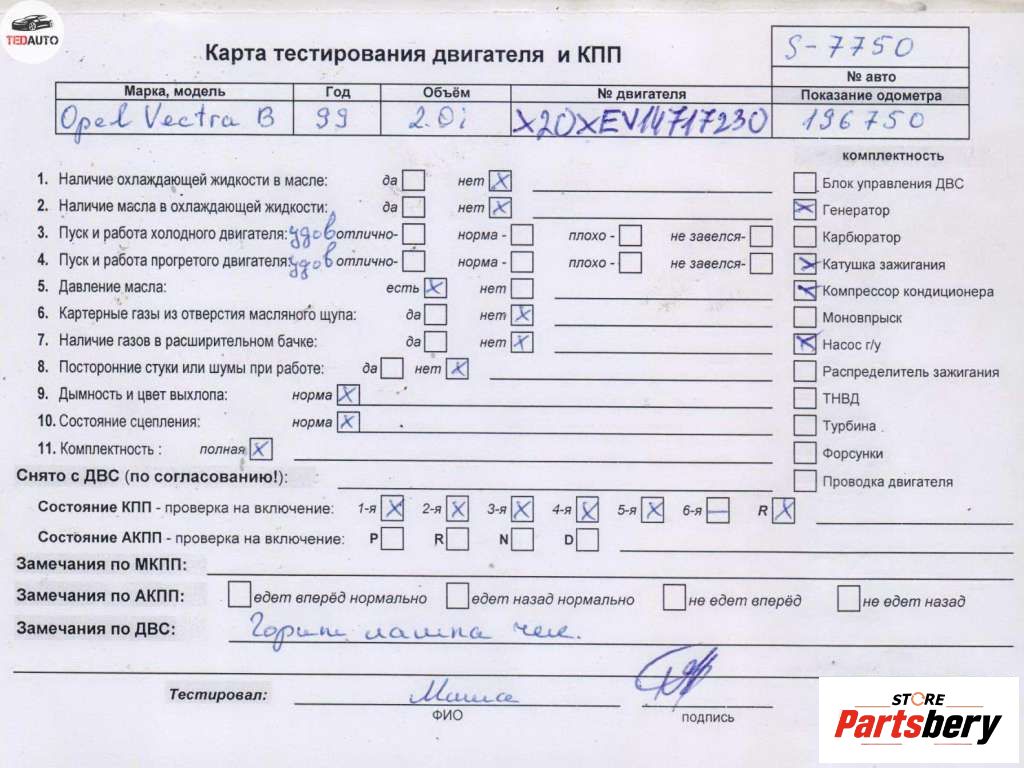 TEDAUTO
Карта тестирования двигателя и КПП
S-7750
№ авто
Марка, модель Год Объём № двигателя Показание одометра
Opel Vectra B 99 2.0i X20XEV14717230 196750
комплектность
1. Наличие охлаждающей жидкости в масле: да нет X
Блок управления ДВС
2. Наличие масла в охлаждающей жидкости: да нет X
X Генератор
3. Пуск и работа холодного двигателя: удов отлично- норма - плохо - не завелся-
Карбюратор
4. Пуск и работа прогретого двигателя: удов отлично- норма - плохо - не завелся-
X Катушка зажигания
5. Давление масла: есть X нет
X Компрессор кондиционера
6. Картерные газы из отверстия масляного щупа: да нет X
Моновпрыск
7. Наличие газов в расширительном бачке: да нет X
X Насос г/у
8. Посторонние стуки или шумы при работе: да нет X
Распределитель зажигания
9. Дымность и цвет выхлопа: норма X
ТНВД
10. Состояние сцепления: норма X
Турбина
11. Комплектность : полная X
Форсунки
Снято с ДВС (по согласованию!):
Проводка двигателя
Состояние КПП - проверка на включение: 1-я X 2-я X 3-я X 4-я X 5-я X 6-я — R X
Состояние АКПП - проверка на включение: P R N D
Замечания по МКПП:
Замечания по АКПП: едет вперёд нормально едет назад нормально не едет вперёд не едет назад
Замечания по ДВС: Горит лампа чек.
Тестировал: Миша
ФИО подпись
STORE
Partsbery